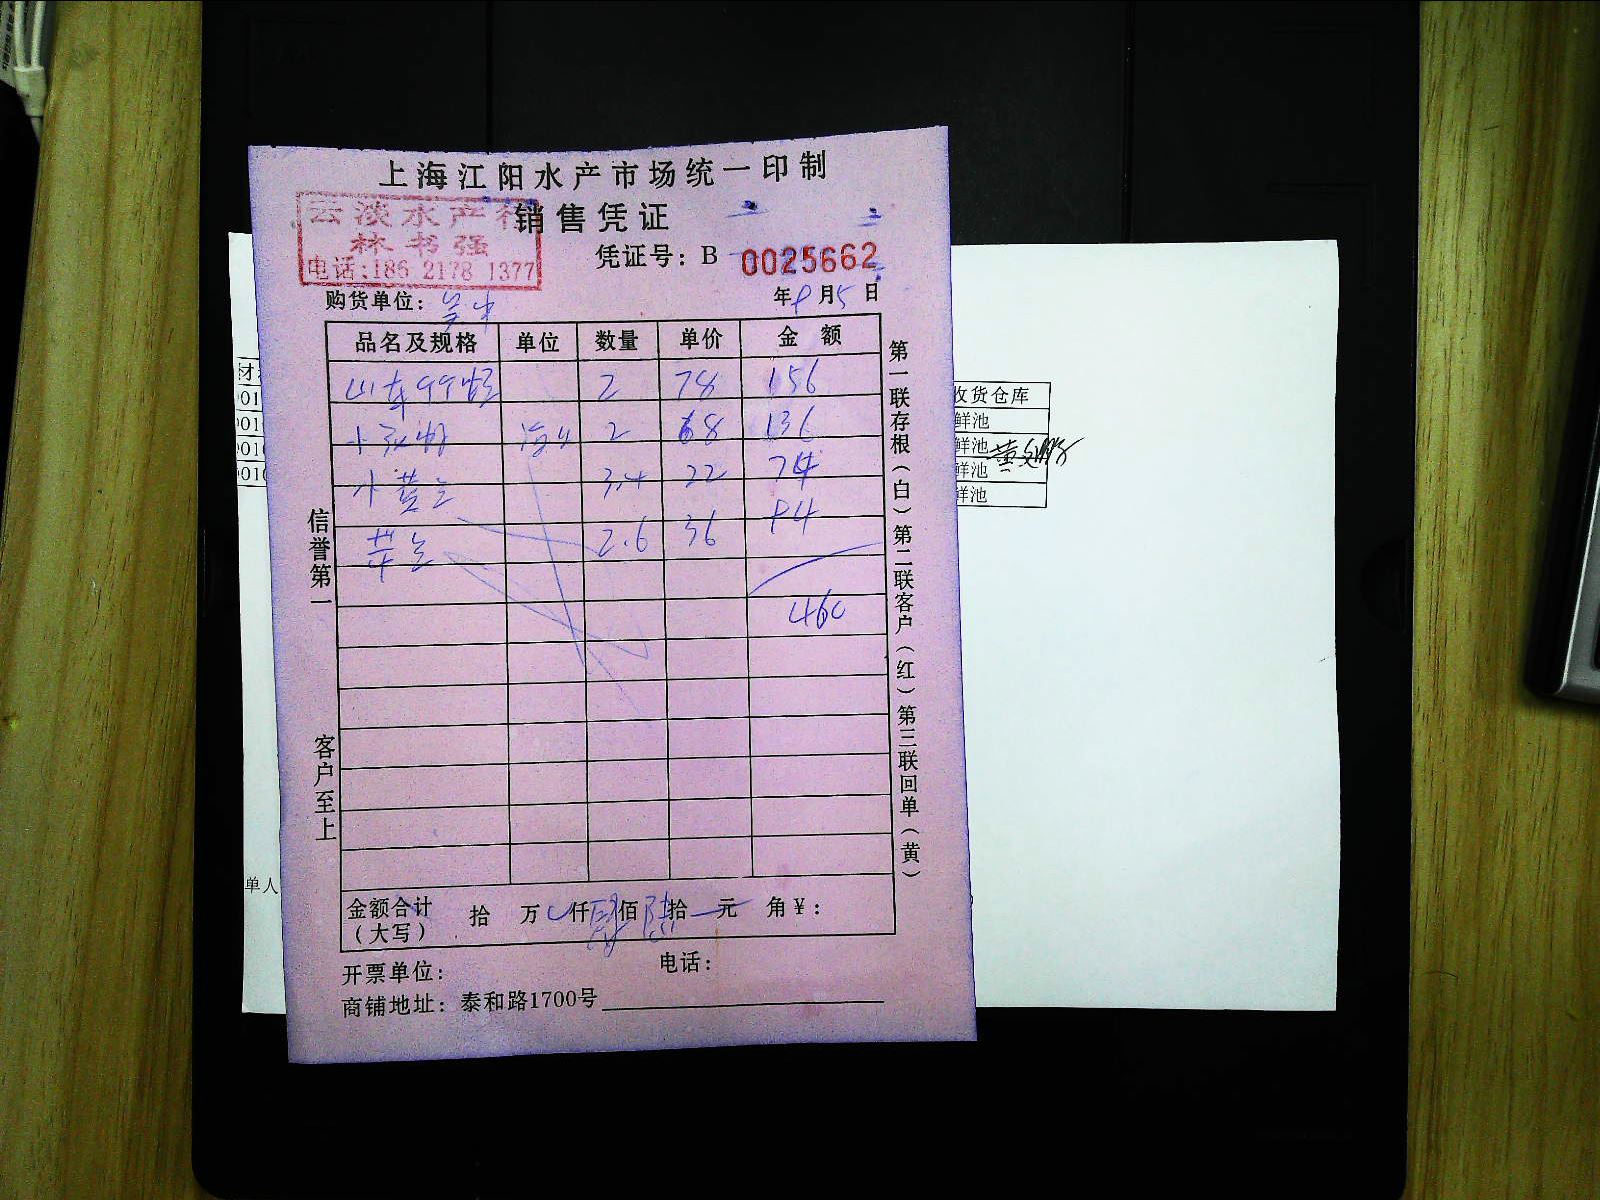 上海江阳水产市场统一印制
云淡水产行
销售凭证
林书强
电话:186 2178 1377
凭证号：B 0025662
购货单位：
年8月5日
品名及规格 单位 数量 单价 金额
2 78 156
2 68 136
小黄 3.4 22 74
2.6 36 84
460
金额合计（大写） 拾 万 仟 肆 佰 陆 拾 元 角￥：
开票单位： 电话：
商铺地址：泰和路1700号
信誉第一
客户至上
第一联存根（白）第二联客户（红）第三联回单（黄）
收货仓库
鲜池
鲜池
鲜池
鲜池
单人